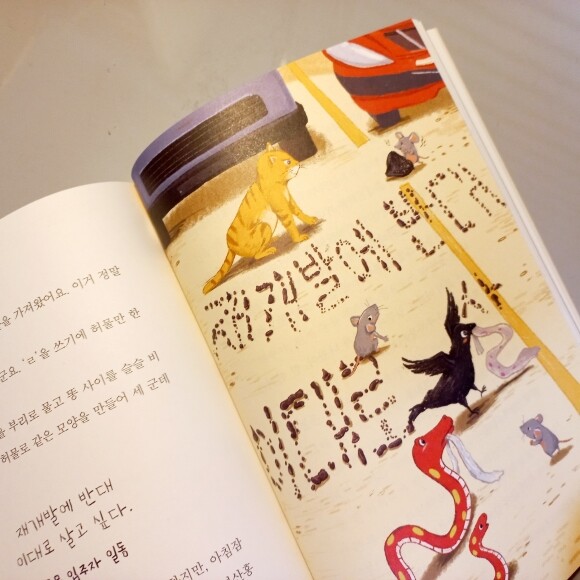 가져왔어요. 이거 정말
군요. 'ㄹ'을 쓰기에 허물만 한
부리로 물고 똥 사이를 슬슬 비
허물로 같은 모양을 만들어 세 군데
재개발에 반대
이대로 살고 싶다.
입주자 일동
아침잠
재개발에 반대
이대로 살